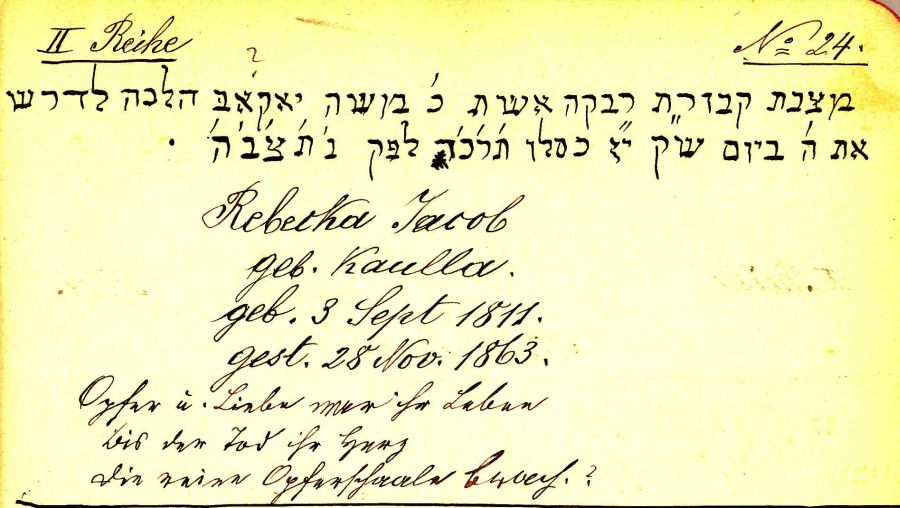 II Reihe № 24.
?
מצבת קבורת רבקה אשת כ׳ משה יאקאב הלכה לדרש
את ה׳ ביום ש״ק י״ז כסלו ת׳ר׳כ׳ד׳ לפק נ׳ת׳צ׳ב׳ה׳ .
Rebecka Jacob
geb. Kaulla.
geb. 3 Sept 1811.
gest. 28 Nov. 1863.
Opfer u. Liebe war ihr Leben
bis der Tod ihr Herz
die reine Opferschaale brach.?